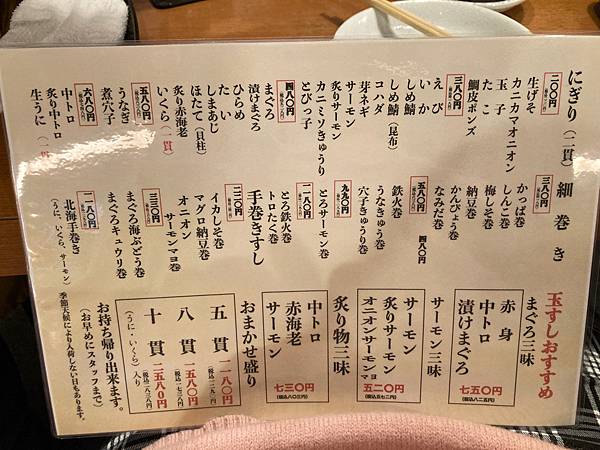 にぎり(二貫)
二〇〇円
生げそ
カニカマオニオン
玉子
たこ
鯛皮ポンズ
三八〇円
えび
いか
しめ鯖
しめ鯖(昆布)
コハダ
芽ネギ
サーモン
炙りサーモン
カニミソきゅうり
とびっ子
四八〇円
まぐろ
漬けまぐろ
ひらめ
たい
しまあじ
ほたて(貝柱)
炙り赤海老
いくら(一貫)
五八〇円
うなぎ
煮穴子
六八〇円
中トロ
炙り中トロ
生うに(一貫)
細巻き
三八〇円
かっぱ巻
しんこ巻
梅しそ巻
納豆巻
かんぴょう巻
なみだ巻
四八〇円
五八〇円
鉄火巻
うなきゅう巻
穴子きゅうり巻
九八〇円
とろサーモン巻
一二八〇円
とろ鉄火巻
トロたく巻
手巻きすし
二三〇円
イカしそ巻
マグロ納豆巻
オニオン
サーモンマヨ巻
三三〇円
まぐろ海ぶどう巻
まぐろキュウリ巻
一一八〇円
北海手巻き
(うに、いくら、サーモン)
玉すしおすすめ
まぐろ三昧
赤身
中トロ
漬けまぐろ
七五〇円
(税込八二五円)
サーモン三昧
サーモン
炙りサーモン
オニオンサーモンマヨ
五二〇円
(税込五七二円)
炙り物三昧
中トロ
赤海老
サーモン
七三〇円
(税込八〇三円)
おまかせ盛り
五貫 一一八〇円
(税込一二九八円)
八貫 一五八〇円
(税込一七三八円)
十貫 二五八〇円
(うに・いくら)入り (税込二八三八円)
お持ち帰り出来ます。
(お早めにスタッフまで)
季節天候により入荷しない日もあります。